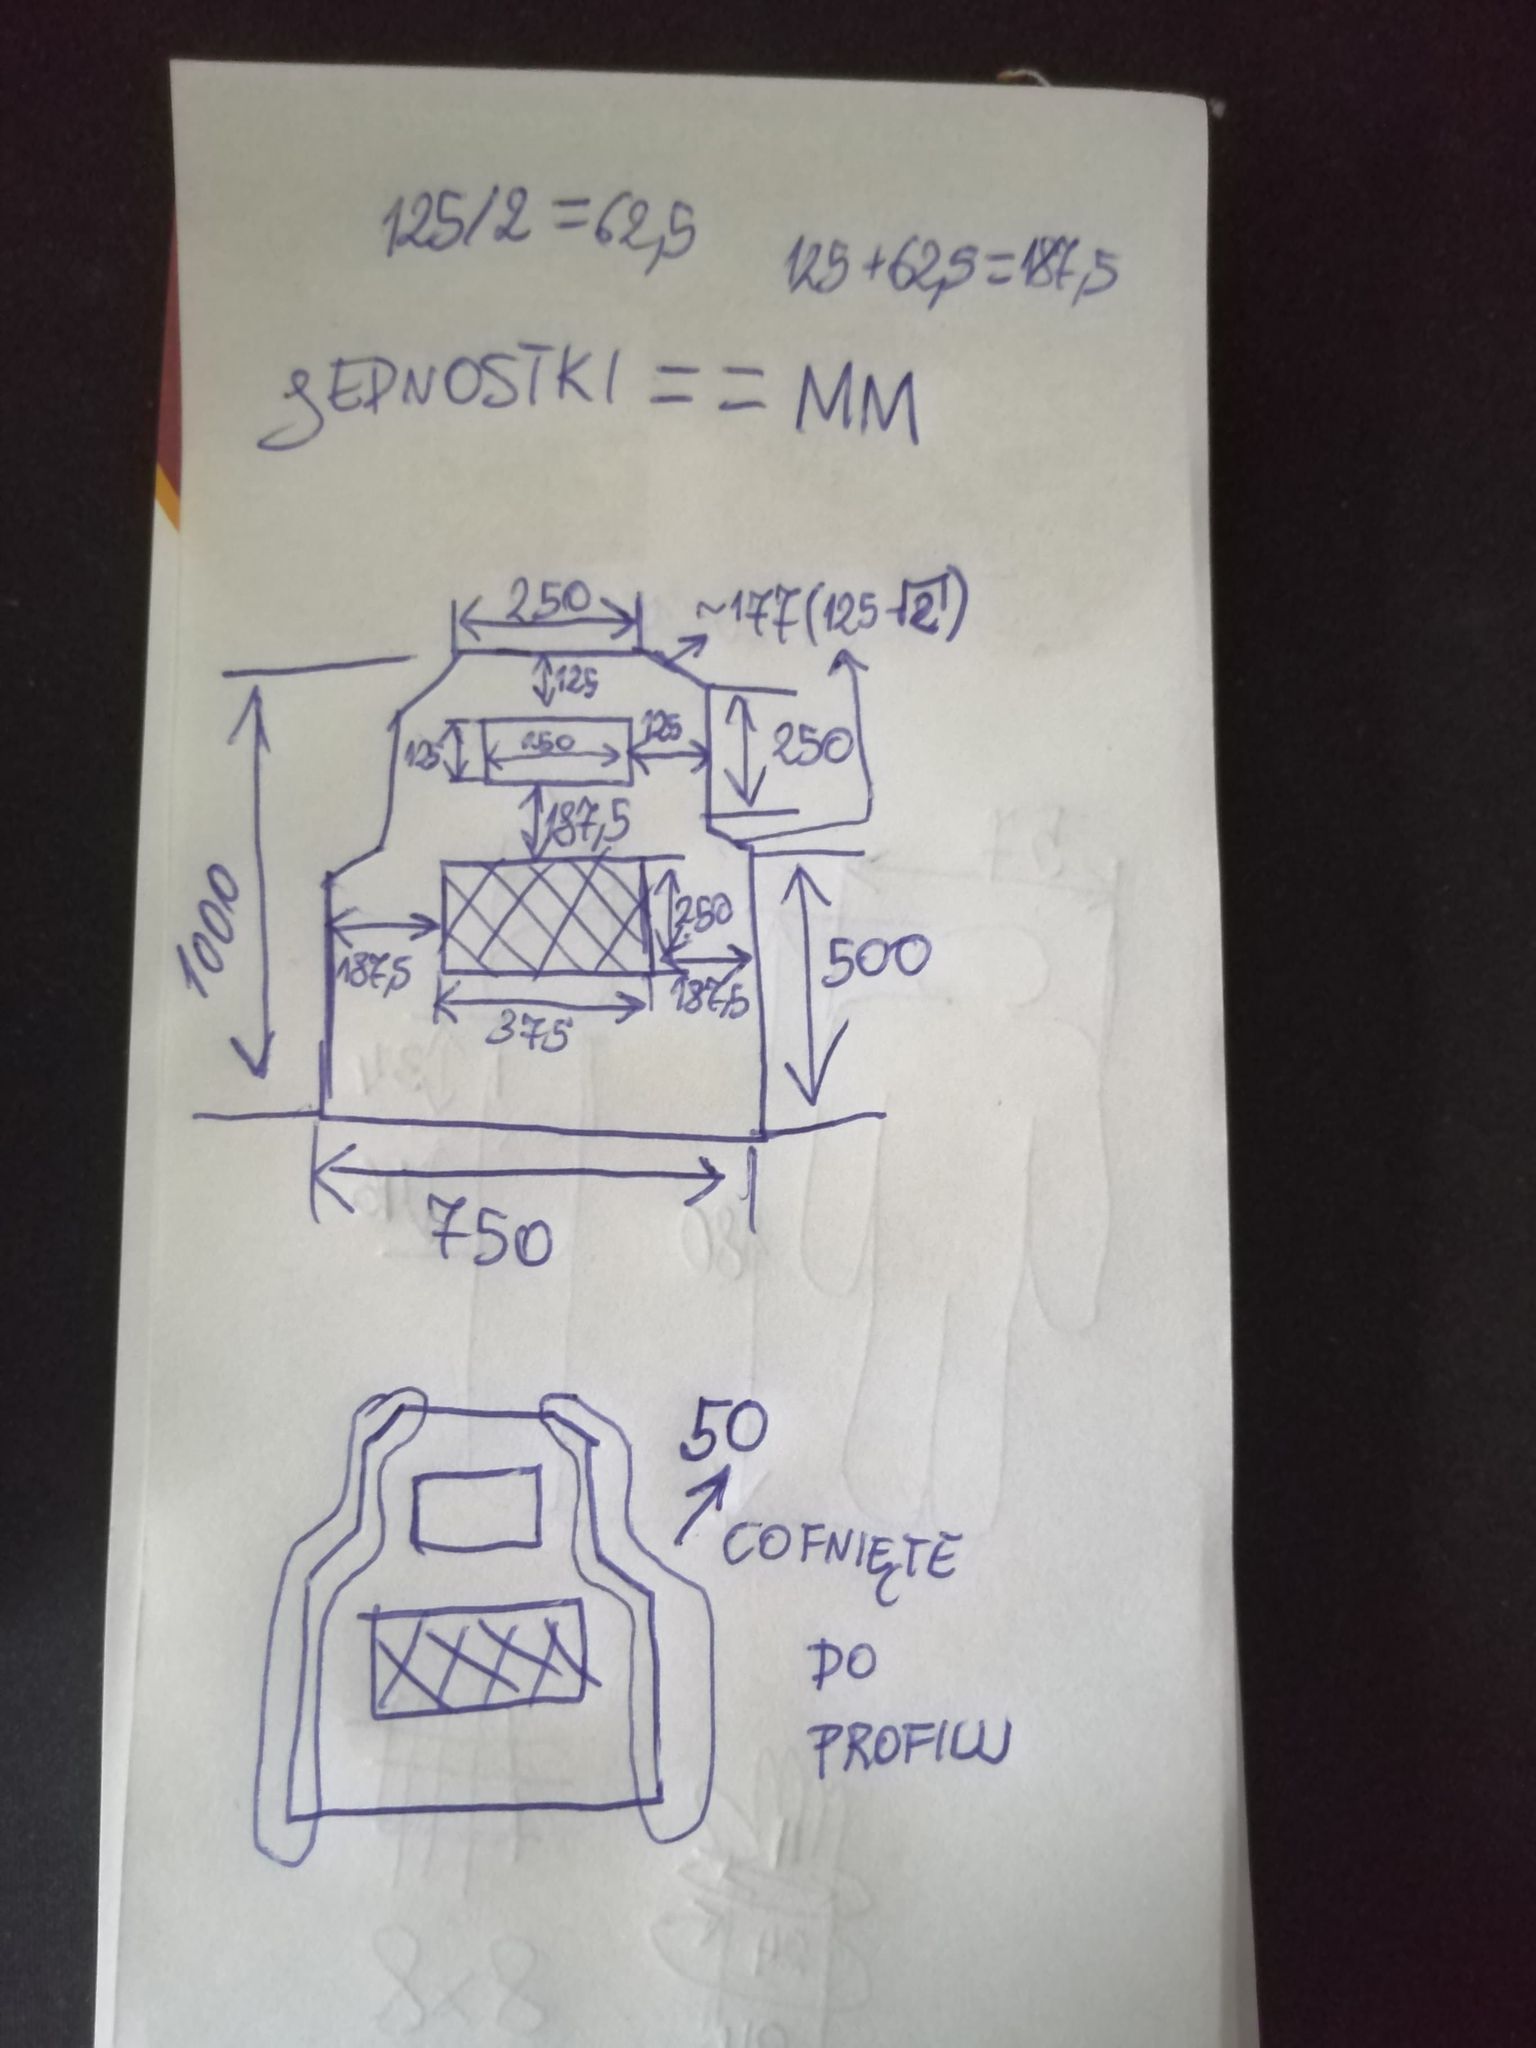 125/2=62,5
125+62,5=187,5
JEDNOSTKI == MM
250
~177(125√2)
125
125
250
125
250
187,5
1000
250
187,5
187,5
500
375
750
50
COFNIĘTE
DO
PROFILU